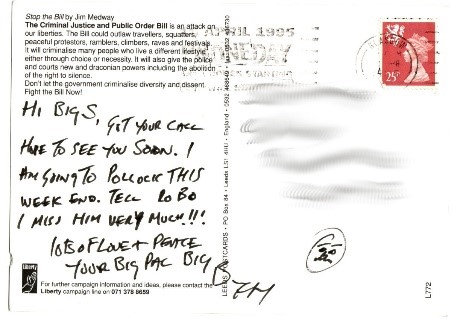 Stop the Bill by Jim Medway
The Criminal Justice and Public Order Bill is an attack on
our liberties. The Bill could outlaw travellers, squatters,
peaceful protestors, ramblers, climbers, raves and festivals.
It will criminalise many people who live a different lifestyle
either through choice or necessity. It will also give the police
and courts new and draconian powers including the abolition
of the right to silence.
Don't let the government criminalise diversity and dissent.
Fight the Bill Now!
HI BIGS,
GOT YOUR CALL
HOPE TO SEE YOU SOON. I
AM GOING TO POLLOCK THIS
WEEK END. TELL ROBO
I MISS HIM VERY MUCH!!!
LOVE + PEACE
YOUR BIG PAL BIG
Liberty
For further campaign information and ideas, please contact the
Liberty campaign line on 071 378 8659
LEEDS POSTCARDS • PO Box 84 • Leeds LS1 4HU • England • 0532 468649
APRIL 1995
25
L772